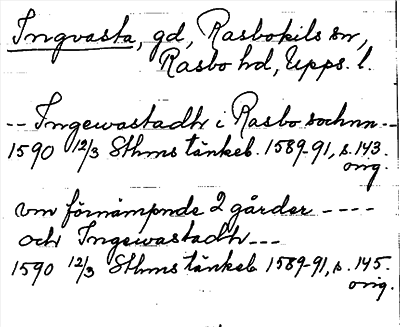 Ingvasta, gd, Rasbokils sn,
Rasbo hd, Upps. l.
-- Ingewastadh i Rasbo sochnn --
1590 12/3 Sthms tänkeb. 1589-91, s. 143.
orig.
um förnämpnde 2 gårder ----
och Ingewastadh ---
1590 12/3 Sthms tänkeb 1589-91, s. 145.
orig.